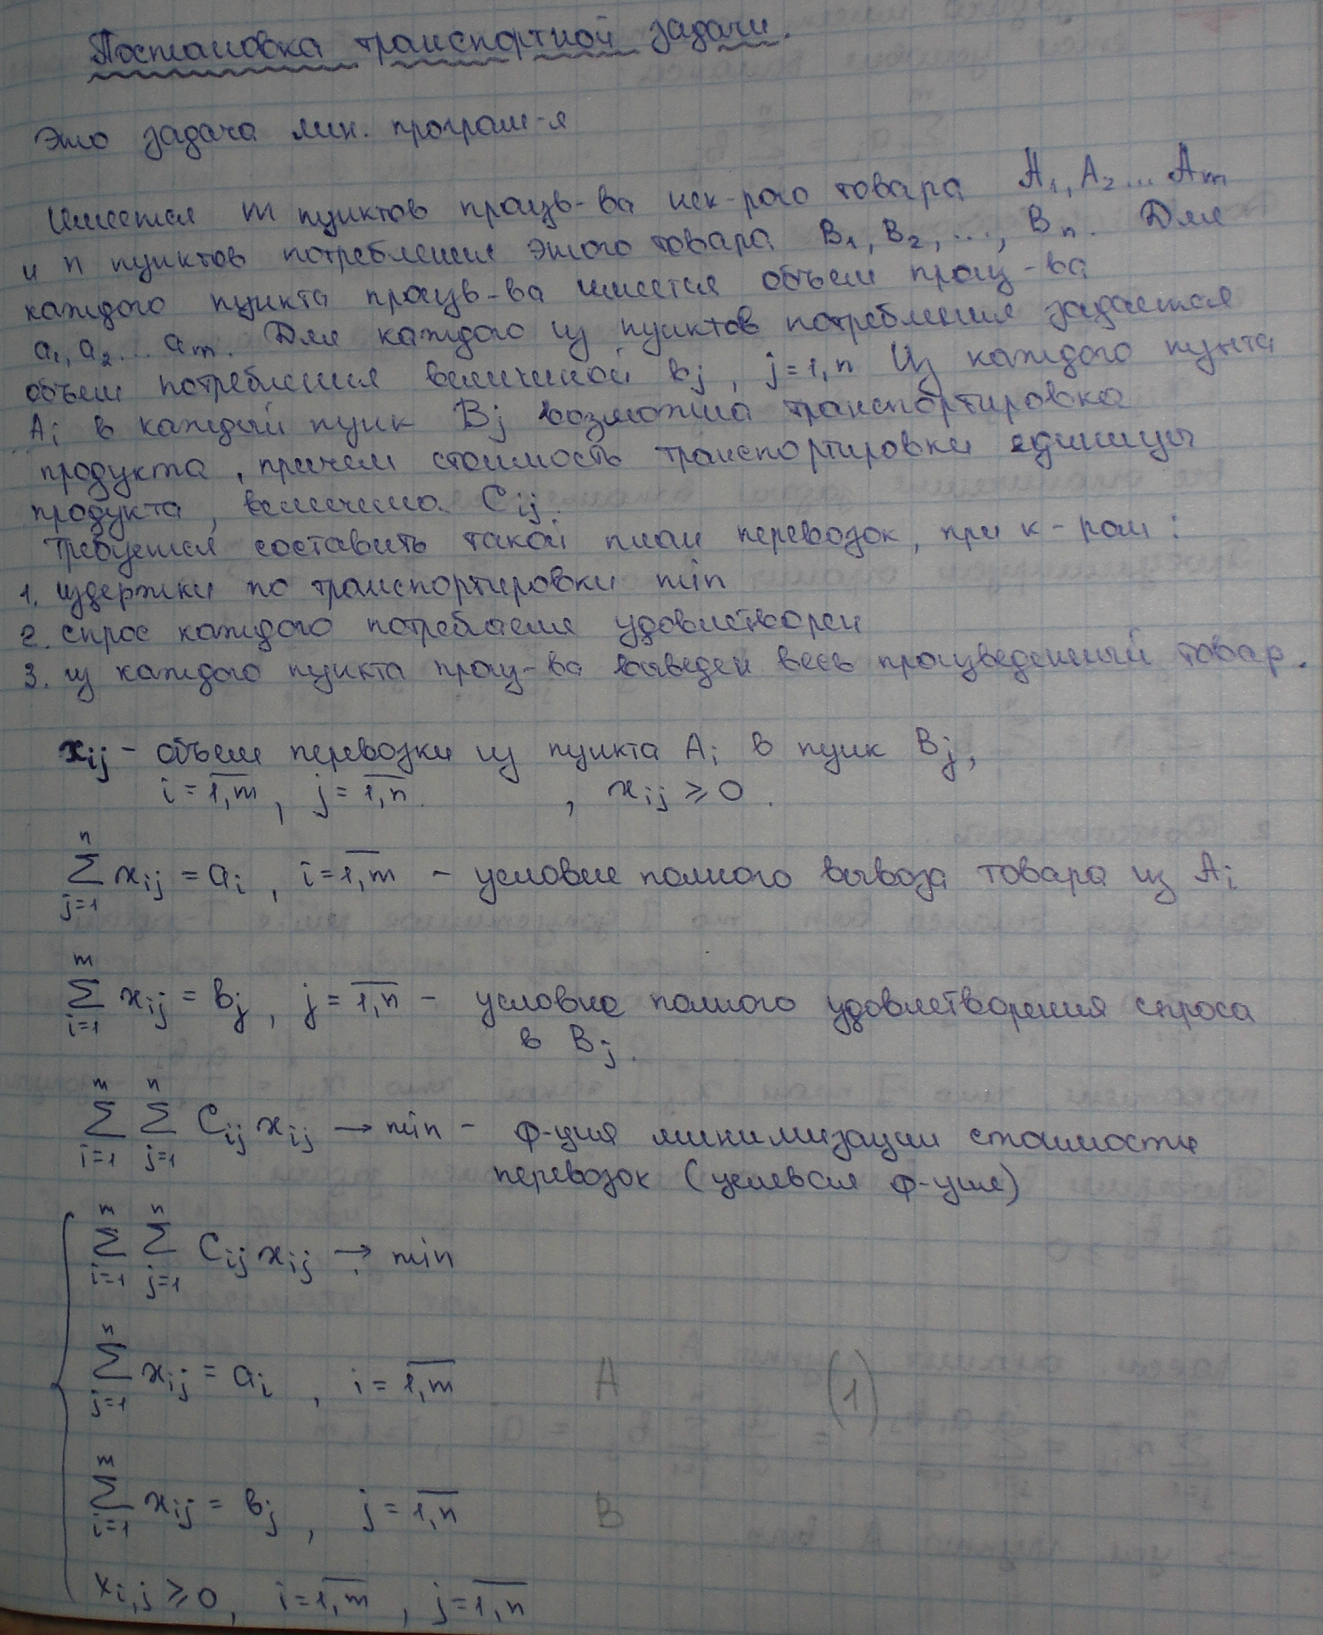 Постановка транспортной задачи.
Это задача лин. програм-я
Имеется m пунктов произв-ва нек-рого товара A₁, A₂ ... Aₘ
и n пунктов потребления этого товара B₁, B₂, ..., Bₙ. Для
каждого пункта произв-ва имеется объем произ-ва
a₁, a₂ ... aₘ. Для каждого из пунктов потребления задается
объем потребления величиной bⱼ, j=1,n Из каждого пункта
Aᵢ в каждый пунк Bⱼ возможна транспортировка
продукта, причем стоимость транспортировки единицы
продукта, величина Cᵢⱼ.
Требуется составить такой план перевозок, при к-ром:
1. издержки по транспортировки min
2. спрос каждого потребителя удовлетворен
3. из каждого пункта произ-ва вывезен весь произведенный товар.
xᵢⱼ – объем перевозки из пункта Aᵢ в пунк Bⱼ,
i = 1,m̅, j = 1,n̅. , xᵢⱼ ≥ 0.
∑ⱼ₌₁ⁿ xᵢⱼ = aᵢ, i = 1,m̅ – условие полного вывоза товара из Aᵢ
∑ᵢ₌₁ᵐ xᵢⱼ = bⱼ, j = 1,n̅ – условие полного удовлетворения спроса
в Bⱼ.
∑ᵢ₌₁ᵐ ∑ⱼ₌₁ⁿ Cᵢⱼ xᵢⱼ → min – ф-ция минимизации стоимости
перевозок (целевая ф-ция)
∑ᵢ₌₁ᵐ ∑ⱼ₌₁ⁿ Cᵢⱼ xᵢⱼ → min
∑ⱼ₌₁ⁿ xᵢⱼ = aᵢ, i = 1,m̅ A (1)
∑ᵢ₌₁ᵐ xᵢⱼ = bⱼ, j = 1,n̅ B
xᵢ,ⱼ ≥ 0, i = 1,m̅, j = 1,n̅